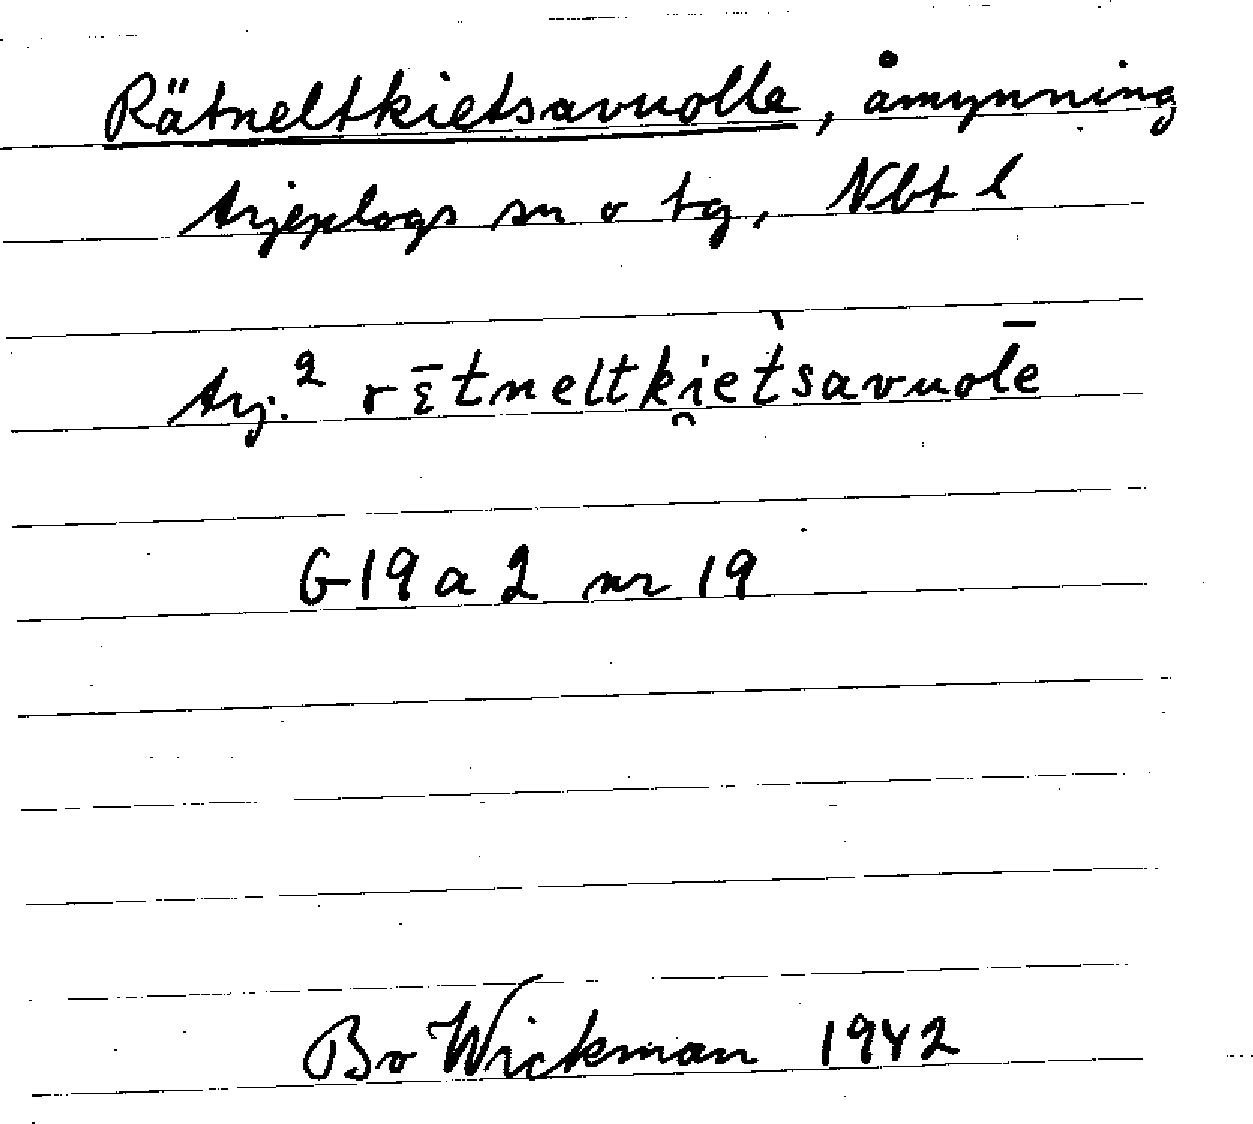 Rätneltkietsavuolle, åmynning
Arjeplogs sn o tg, Nbt l
Arj.² rɛ̄tneltki̯et̀savuolē
G19 a 2 nr 19
Bo Wickman 1942